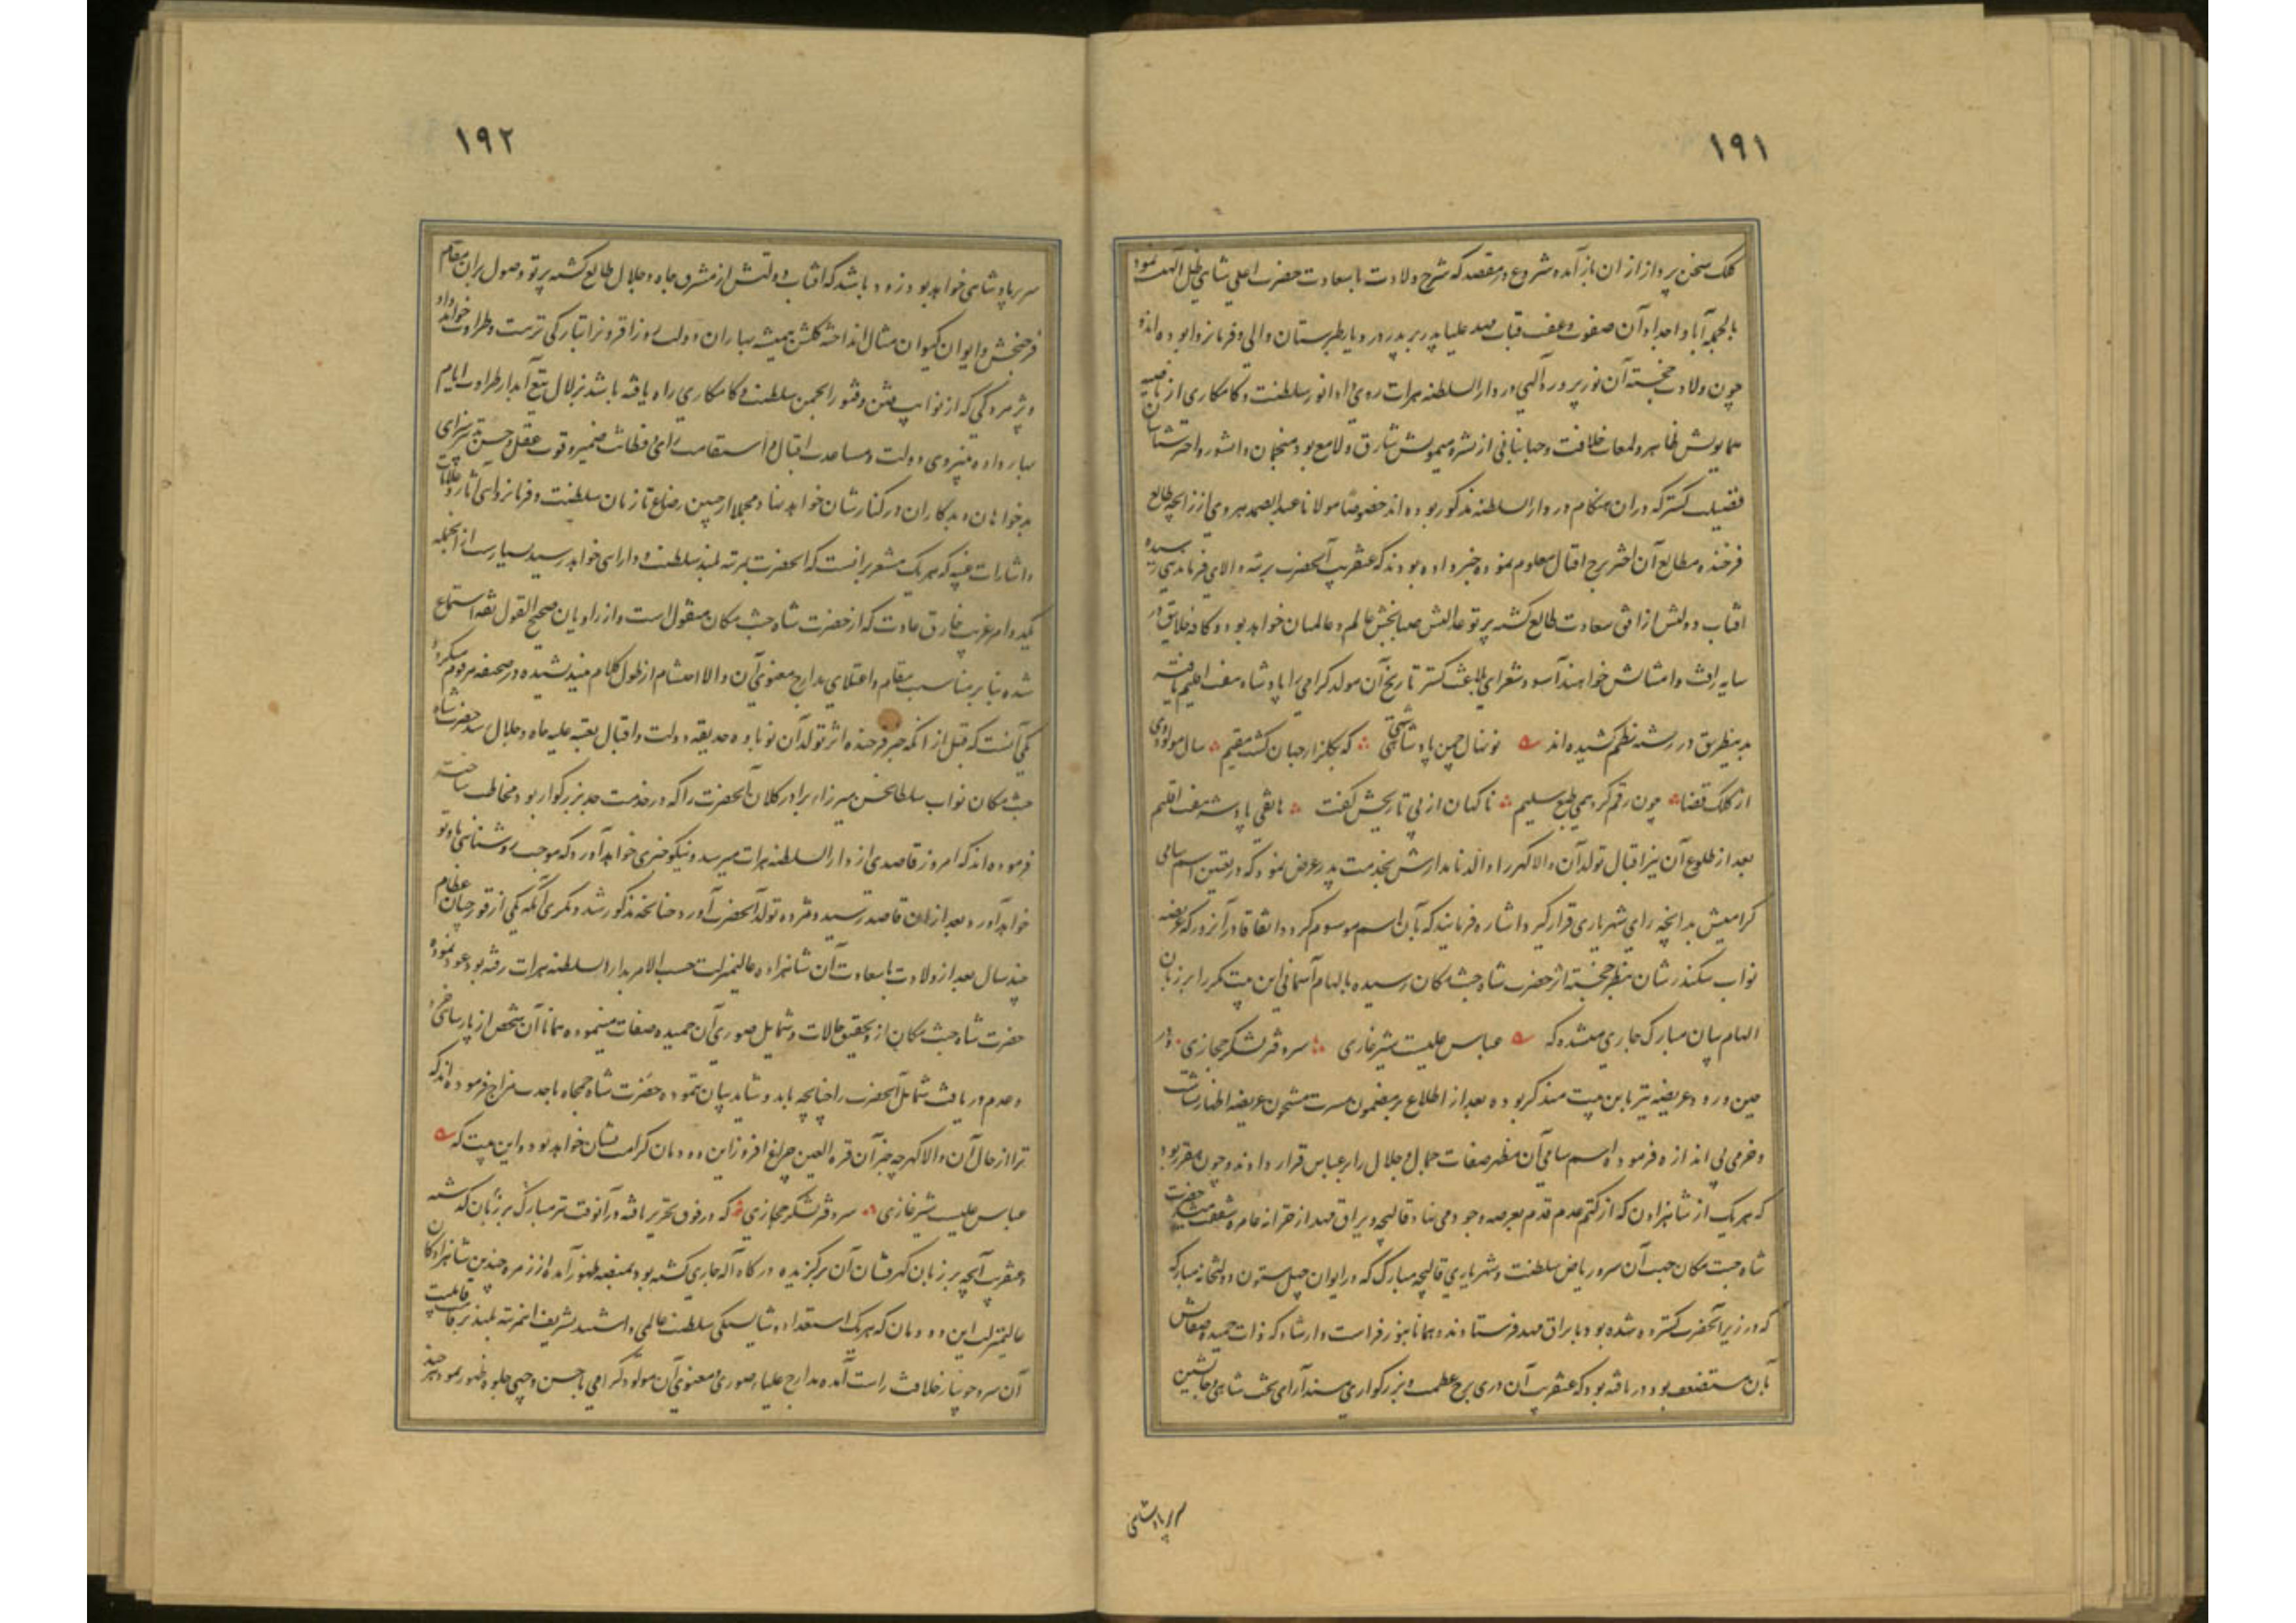 ۱۹۱
کلک سخن پرداز ازان باز آمده شروع در مقصد که شرح ولادت با سعادت حضرت اعلی شاهی ظل الهیست نموده
بالجمله آبا و اجداد آن صفوت و عفت قباب مهد علیا پدر بر پدر در دیار طبرستان والی و فرمانروا بوده‌اند
چون ولادت خجسته آن نور پرورد الهی در دار السلطنه هرات روی داد انور سلطنت و کامکاری از ناصیه
همایونش ظاهر و لمعات خلافت و جهانبانی از بشره میمونش شارق و لامع بود منجمان دانشور و اختر شناسان
فضیلت گستر که دران هنگام در دار السلطنه مذکور بوده‌اند خصوصا مولانا عبد الصمد هروی از زایچه طالع
فرخنده مطالع آن اختر برج اقبال معلوم نموده خبر داده بودند که عنقریب آنحضرت برتبه والای فرماندهی رسیده
افتاب دولتش از افق سعادت طالع گشته پرتو عدالتش ضیابخش عالم و عالمیان خواهد بود و کافه خلایق در
سایه رافت و امتنانش خواهند آسود شعرای بلاغت گستر تاریخ آن مولد گرامی را پادشاه هفت اقلیم یافته
بدینطریق در رشته نظم کشیده‌اند نو نهال چمن پادشاهی که بگلزار جهان گشت مقیم سال مولود وی
از کلک قضا چون رقم کردیمی طبع سلیم ناگهان از پی تاریخش گفت هاتفی پادشه هفت اقلیم
بعد از طلوع آن نیر اقبال تولد آن والا گهر را والد نامدارش بخدمت پدر عرض نمود که در تعیین اسم سامی
گرامیش بدانچه رای شهریاری قرار گیرد اشاره فرمایند که بآن اسم موسوم گردد و اتفاقا در آنروز که عریضه
نواب سکندر شان بنظر خجسته اثر حضرت شاه جنت مکان رسیده بالهام آسمانی این بیت مکرر ابر زبان
الهام بیان مبارک جاری میشده که عباس علیست شیر غازی سر دفتر لشکر حجازی در
حین ورود عریضه نیز باین بیت متذکر بوده بعد از اطلاع بر مضمون مسرت مشحون عریضه اظهار بشاشت
و خرمی بی اندازه فرموده اسم سامی آن مظهر صفات جمال و جلال را بر عباس قرار دادند و چون مقرر بود
که هر یک از شاهزادن که از کتم عدم قدم بعرصه وجود می نهاد قالیچه و یراق مهد از خزانه عامره شفقت میشد حضرت
شاه جنت مکان جهت آن سرو ریاض سلطنت و شهریاری قالیچه مبارک که در ایوان چهل ستون دولتخانه مبارکه
که در زیر آنحضرت گسترده شده بود با یراق مهد فرستادند و همانا بنور فراست و ارشاد که ذات حمیده صفاتش
بآن متصف بود دریافته بود که عنقریب آن دری برج عظمت و بزرگواری مسند آرای تخت شاهی و جانشین
سریر پادشاهی
۱۹۲
سریر پادشاهی خواهد بود و زود باشد که افتاب دولتش از مشرق جاه و جلال طالع گشته پرتو وصول بران مقام
فرحبخش و ایوان کیوان مثال انداخته گلشن همیشه بهار ان دولت روز افزونرا بتازگی تربیت و طراوت خواهد داد
و پژمردگی که از نوایب فتن و فتور انجمن سلطنت و کامکاری راه یافته باشد بزلال تیغ آبدار طراوت ایام
بهار داده بنیروی دولت و مساعدت اقبال و استقامت رای و فطانت ضمیر و قوت عقل و حسن تدبیر سزای
بدخواهان و بدکاران در کنارشان خواهد نهاد مجملا از حین رضاع تا زمان سلطنت و فرمانروایی آثار و علامات
و اشارات غیبیه که هر یک مشعر برانست که انحضرت بمرتبه بلند سلطنت و دارایی خواهد رسید بسیار است از انجمله
یکدو امر غریب خارق عادت که از حضرت شاه جنت مکان منقول است و از راویان صحیح القول ثقه استماع
شده بنا بر مناسبت مقام و اعتلای مدارج معنوی آن والا احتشام از طول کلام نیندیشیده در صحیفه مرقوم میگردد
یکی آنست که قبل از انکه خبر فرخنده اثر تولد آن نوباوه حدیقه دولت و اقبال بعتبه علیه جاه و جلال رسد حضرت شاه
جنت مکان نواب سلطانحسن میرزا برادر کلان آنحضرت را که در خدمت جد بزرگوار بود مخاطب ساخته
فرموده‌اند که امروز قاصدی از دار السلطنه هرات میرسد و نیکو خبری خواهد آورد که موجب روشناسی ما و تو
خواهد آورد و بعد ازان قاصد رسید و مژده تولد آنحضرت آورد چنانچه مذکور شد دیگری آنکه یکی از قورچیان عظام
چند سال بعد از ولادت با سعادت آن شاهزاده عالیمنزلت حسب الامر بدار السلطنه هرات رفته بود عود نموده
حضرت شاه جنت مکان از و تحقیق حالات و شمایل صوری آن حمیده صفات مینموده همانا آن شخص از نارسایی خرد
و عدم دریافت شمائل آنحضرت را چنانچه باید و شاید بیان ننموده حضرت شاه جمجاه با حدت مزاج فرموده‌اند که
ترا از حال آن والا گهر چه خبر آن قرة العین چراغ افروز این دودمان کرامت نشان خواهد بود و این بیت که
عباس علیست شیر غازی سر دفتر لشکر حجازی که در فوق تحریر یافته در آنوقت نیز مبارک بر زبان گذشته
و عنقریب آنچه بر زبان گهر فشان آن برگزیده درگاه آله جاری گشته بود بمنصه ظهور آمده از زمره چندین شاهزادگان
عالیمنزلت این دودمان که هر یک استعداد و شایستگی سلطنت عالمی داشتند تشریف انمرتبه بلند بر قامت قابلیت
آن سرو جویبار خلافت راست آمده مدارج علیاء صوری و معنوی آن مولود گرامی باحسن وجهی جلوه ظهور نمود هر چند